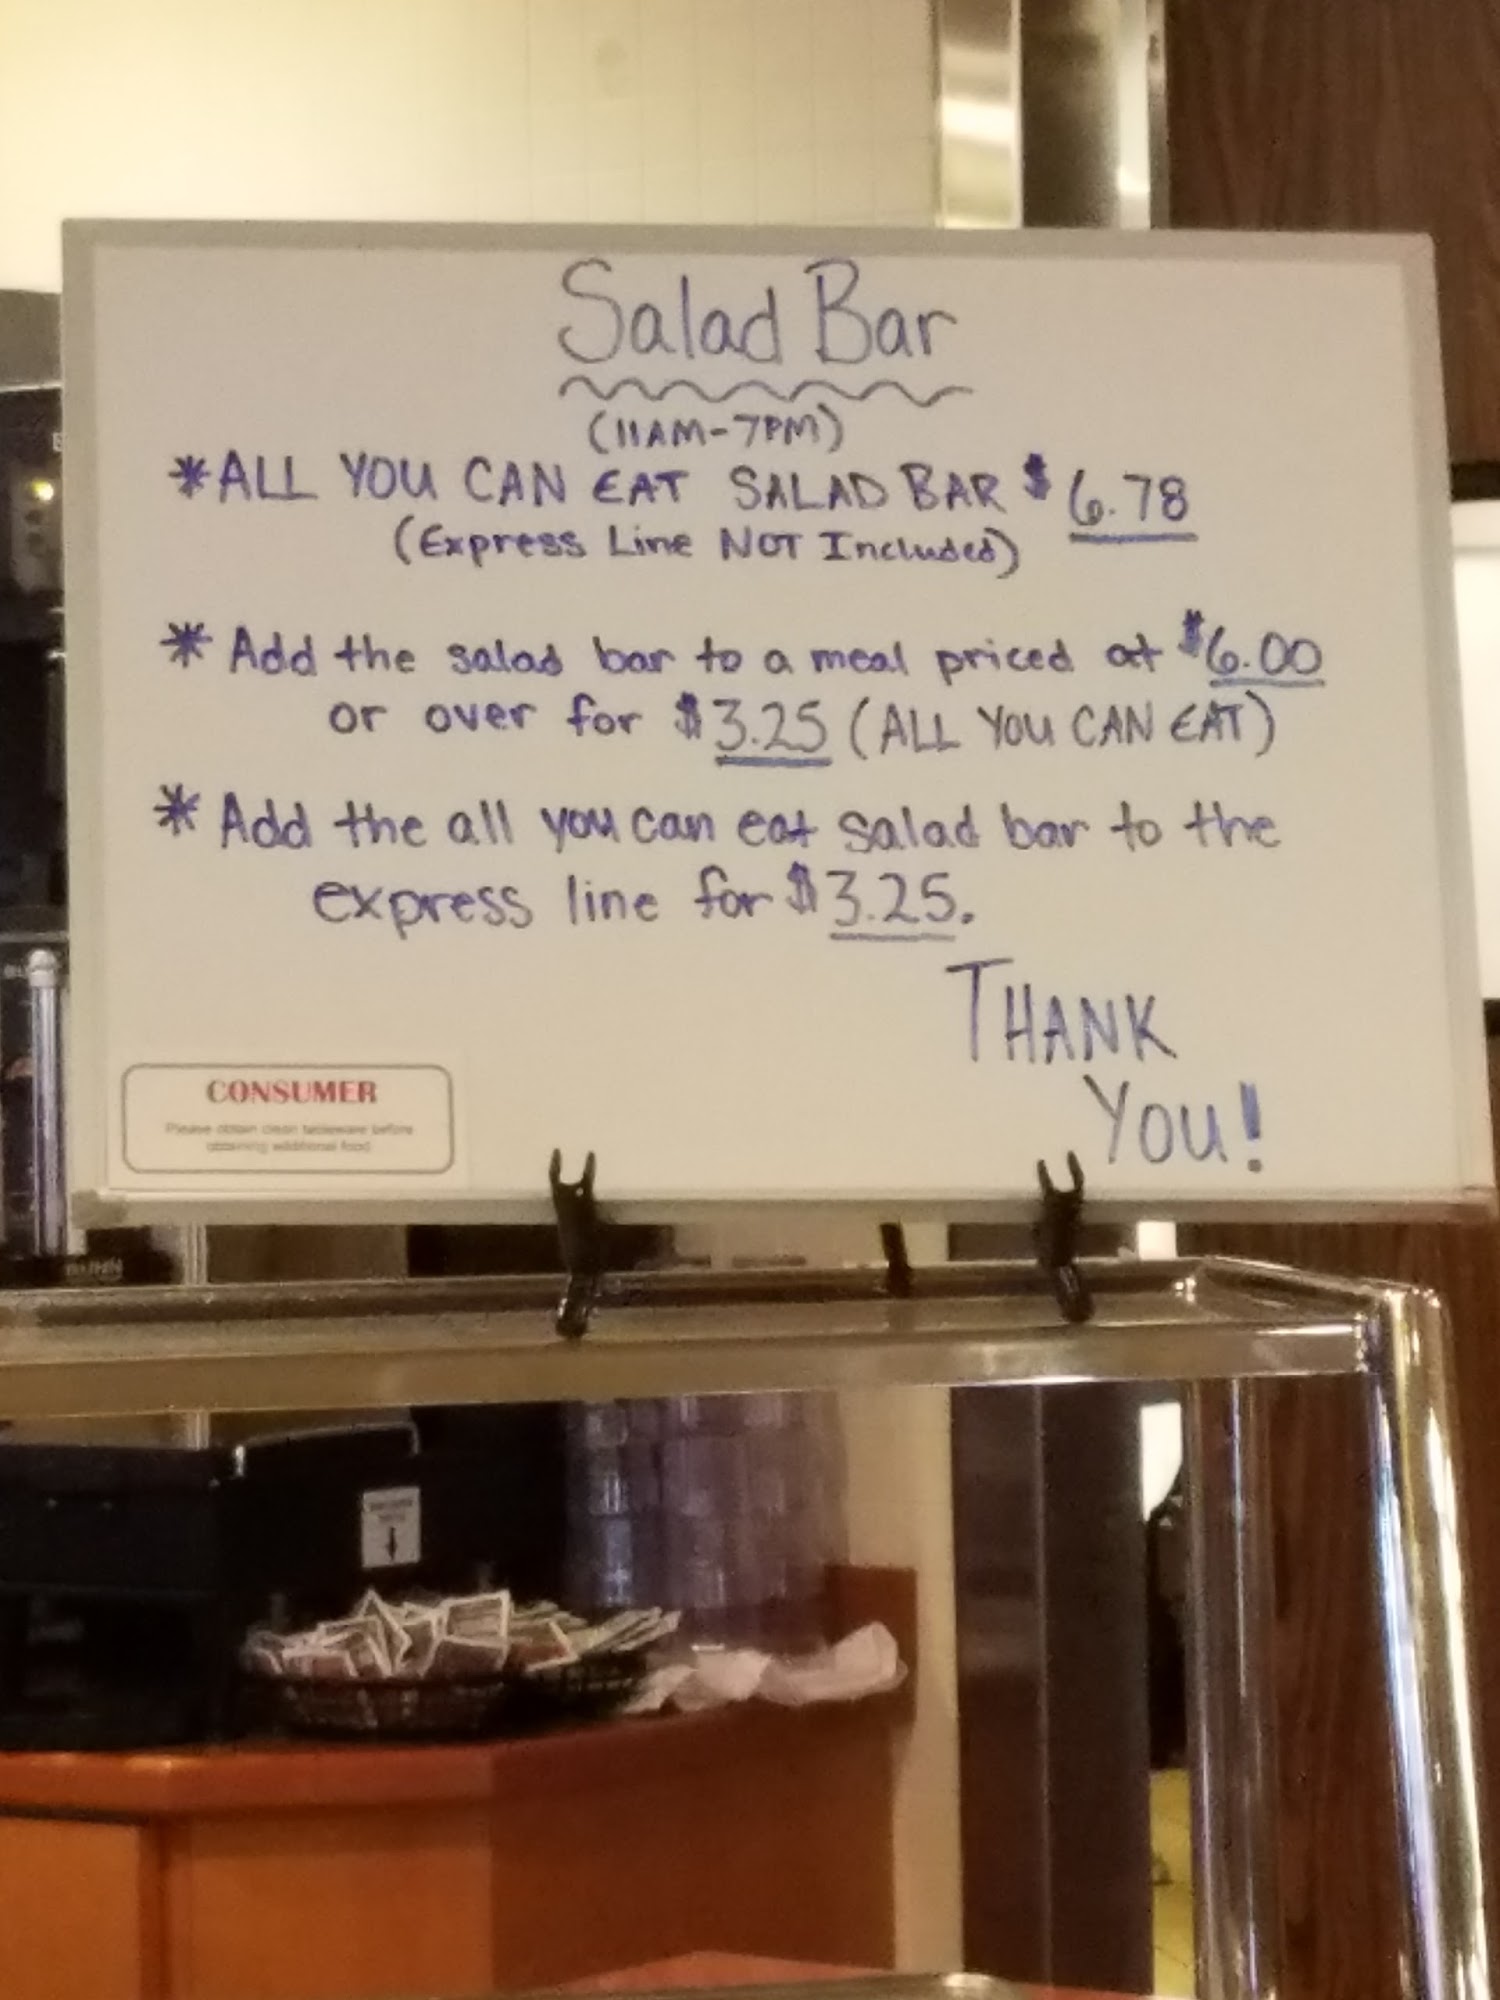 Salad Bar
(11AM-7PM)
*ALL YOU CAN EAT SALAD BAR $6.78
(Express Line NOT Included)
* Add the salad bar to a meal priced at $6.00
or over for $3.25 (ALL YOU CAN EAT)
* Add the all you can eat salad bar to the
express line for $3.25.
THANK
YOU!
CONSUMER
Please obtain clean tableware before
obtaining additional food
BUNN